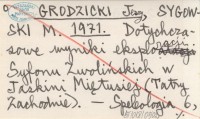 GRODZICKI Jerzy, SYGOW-
SKI M. 1971. Dotychcza-
sowe wyniki eksploracji
Syfonu Zwolińskich w
Jaskini Miętusiej (Tatry
Zachodnie). — Speleologia 6,